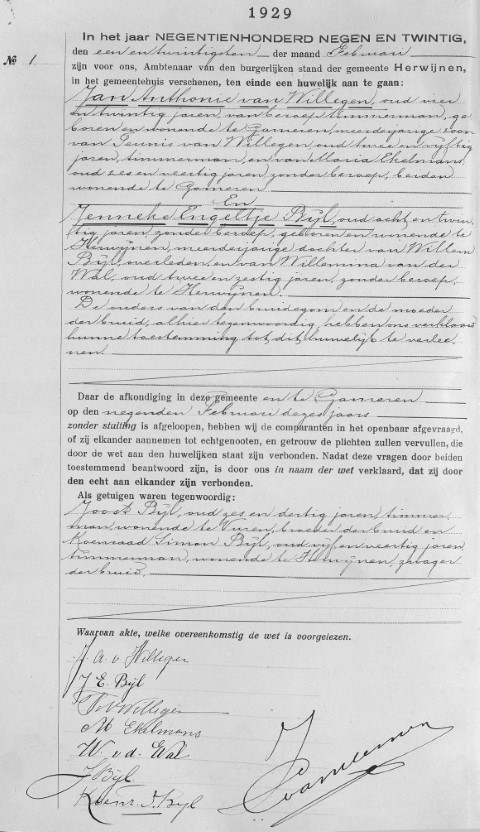 1929
In het jaar NEGENTIENHONDERD NEGEN EN TWINTIG,
den een en twintigsten der maand Februari
Nº 1
zijn voor ons, Ambtenaar van den burgerlijken stand der gemeente Herwijnen,
in het gemeentehuis verschenen, ten einde een huwelijk aan te gaan:
Jan Anthonie van Willegen, oud vier
en twintig jaren, van beroep timmerman, ge
boren en wonende te Gameren, meerderjarige zoon
van Teunis van Willegen, oud twee en vijftig
jaren, timmerman, en van Maria Ekelmans,
oud zes en veertig jaren, zonder beroep, beiden
wonende te Gameren.
En
Jenneke Engeltje Bijl, oud acht en twin
tig jaren, zonder beroep, geboren en wonende te
Herwijnen, meerderjarige dochter van Willem
Bijl, overleden, en van Willemina van der
Wal, oud twee en zestig jaren, zonder beroep,
wonende te Herwijnen.
De ouders van den bruidegom en de moeder
der bruid, alhier tegenwoordig, hebben ons verklaard
hunne toestemming tot dit huwelijk te verlee
nen
Daar de afkondiging in deze gemeente en te Gameren
op den negenden Februari dezes jaars
zonder stuiting is afgeloopen, hebben wij de comparanten in het openbaar afgevraagd,
of zij elkander aannemen tot echtgenooten, en getrouw de plichten zullen vervullen, die
door de wet aan den huwelijken staat zijn verbonden. Nadat deze vragen door beiden
toestemmend beantwoord zijn, is door ons in naam der wet verklaard, dat zij door
den echt aan elkander zijn verbonden.
Als getuigen waren tegenwoordig:
Joost Bijl, oud zes en dertig jaren, timmer
man, wonende te Vuren, broeder der bruid en
Koenraad Simon Bijl, oud vijf en veertig jaren,
timmerman, wonende te Herwijnen, zwager
der bruid.
Waarvan akte, welke overeenkomstig de wet is voorgelezen.
J A. v Willegen
J E. Bijl
T v Willegen
M Ekelmans
W. v. d. Wal
J Bijl
Koenr. S. Bijl